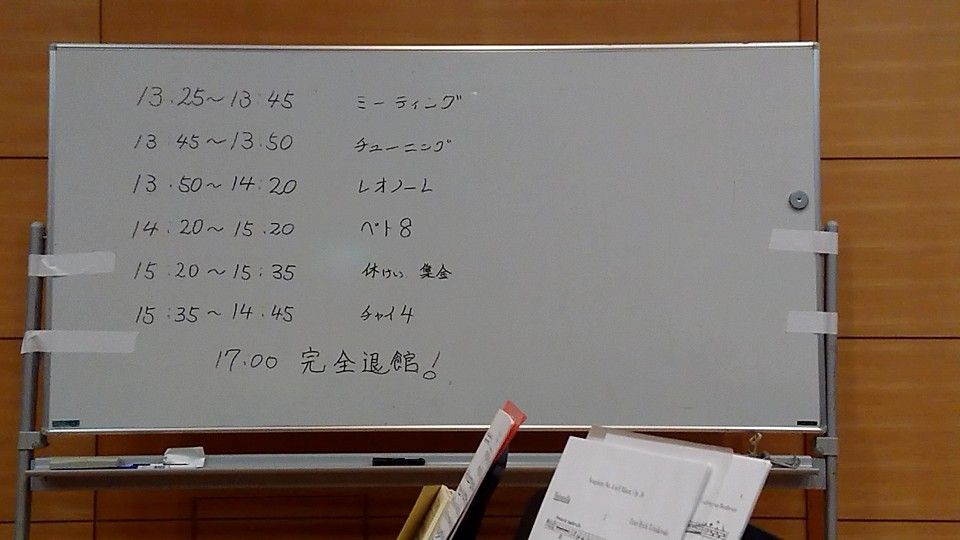 13.25～13:45 ミーティング
13 45～13.50 チューニング
13.50～14:20 レオノーレ
14.20～15.20 ベト8
15:20～15:35 休けい 集金
15:35～14.45 チャイ4
17.00 完全退館!